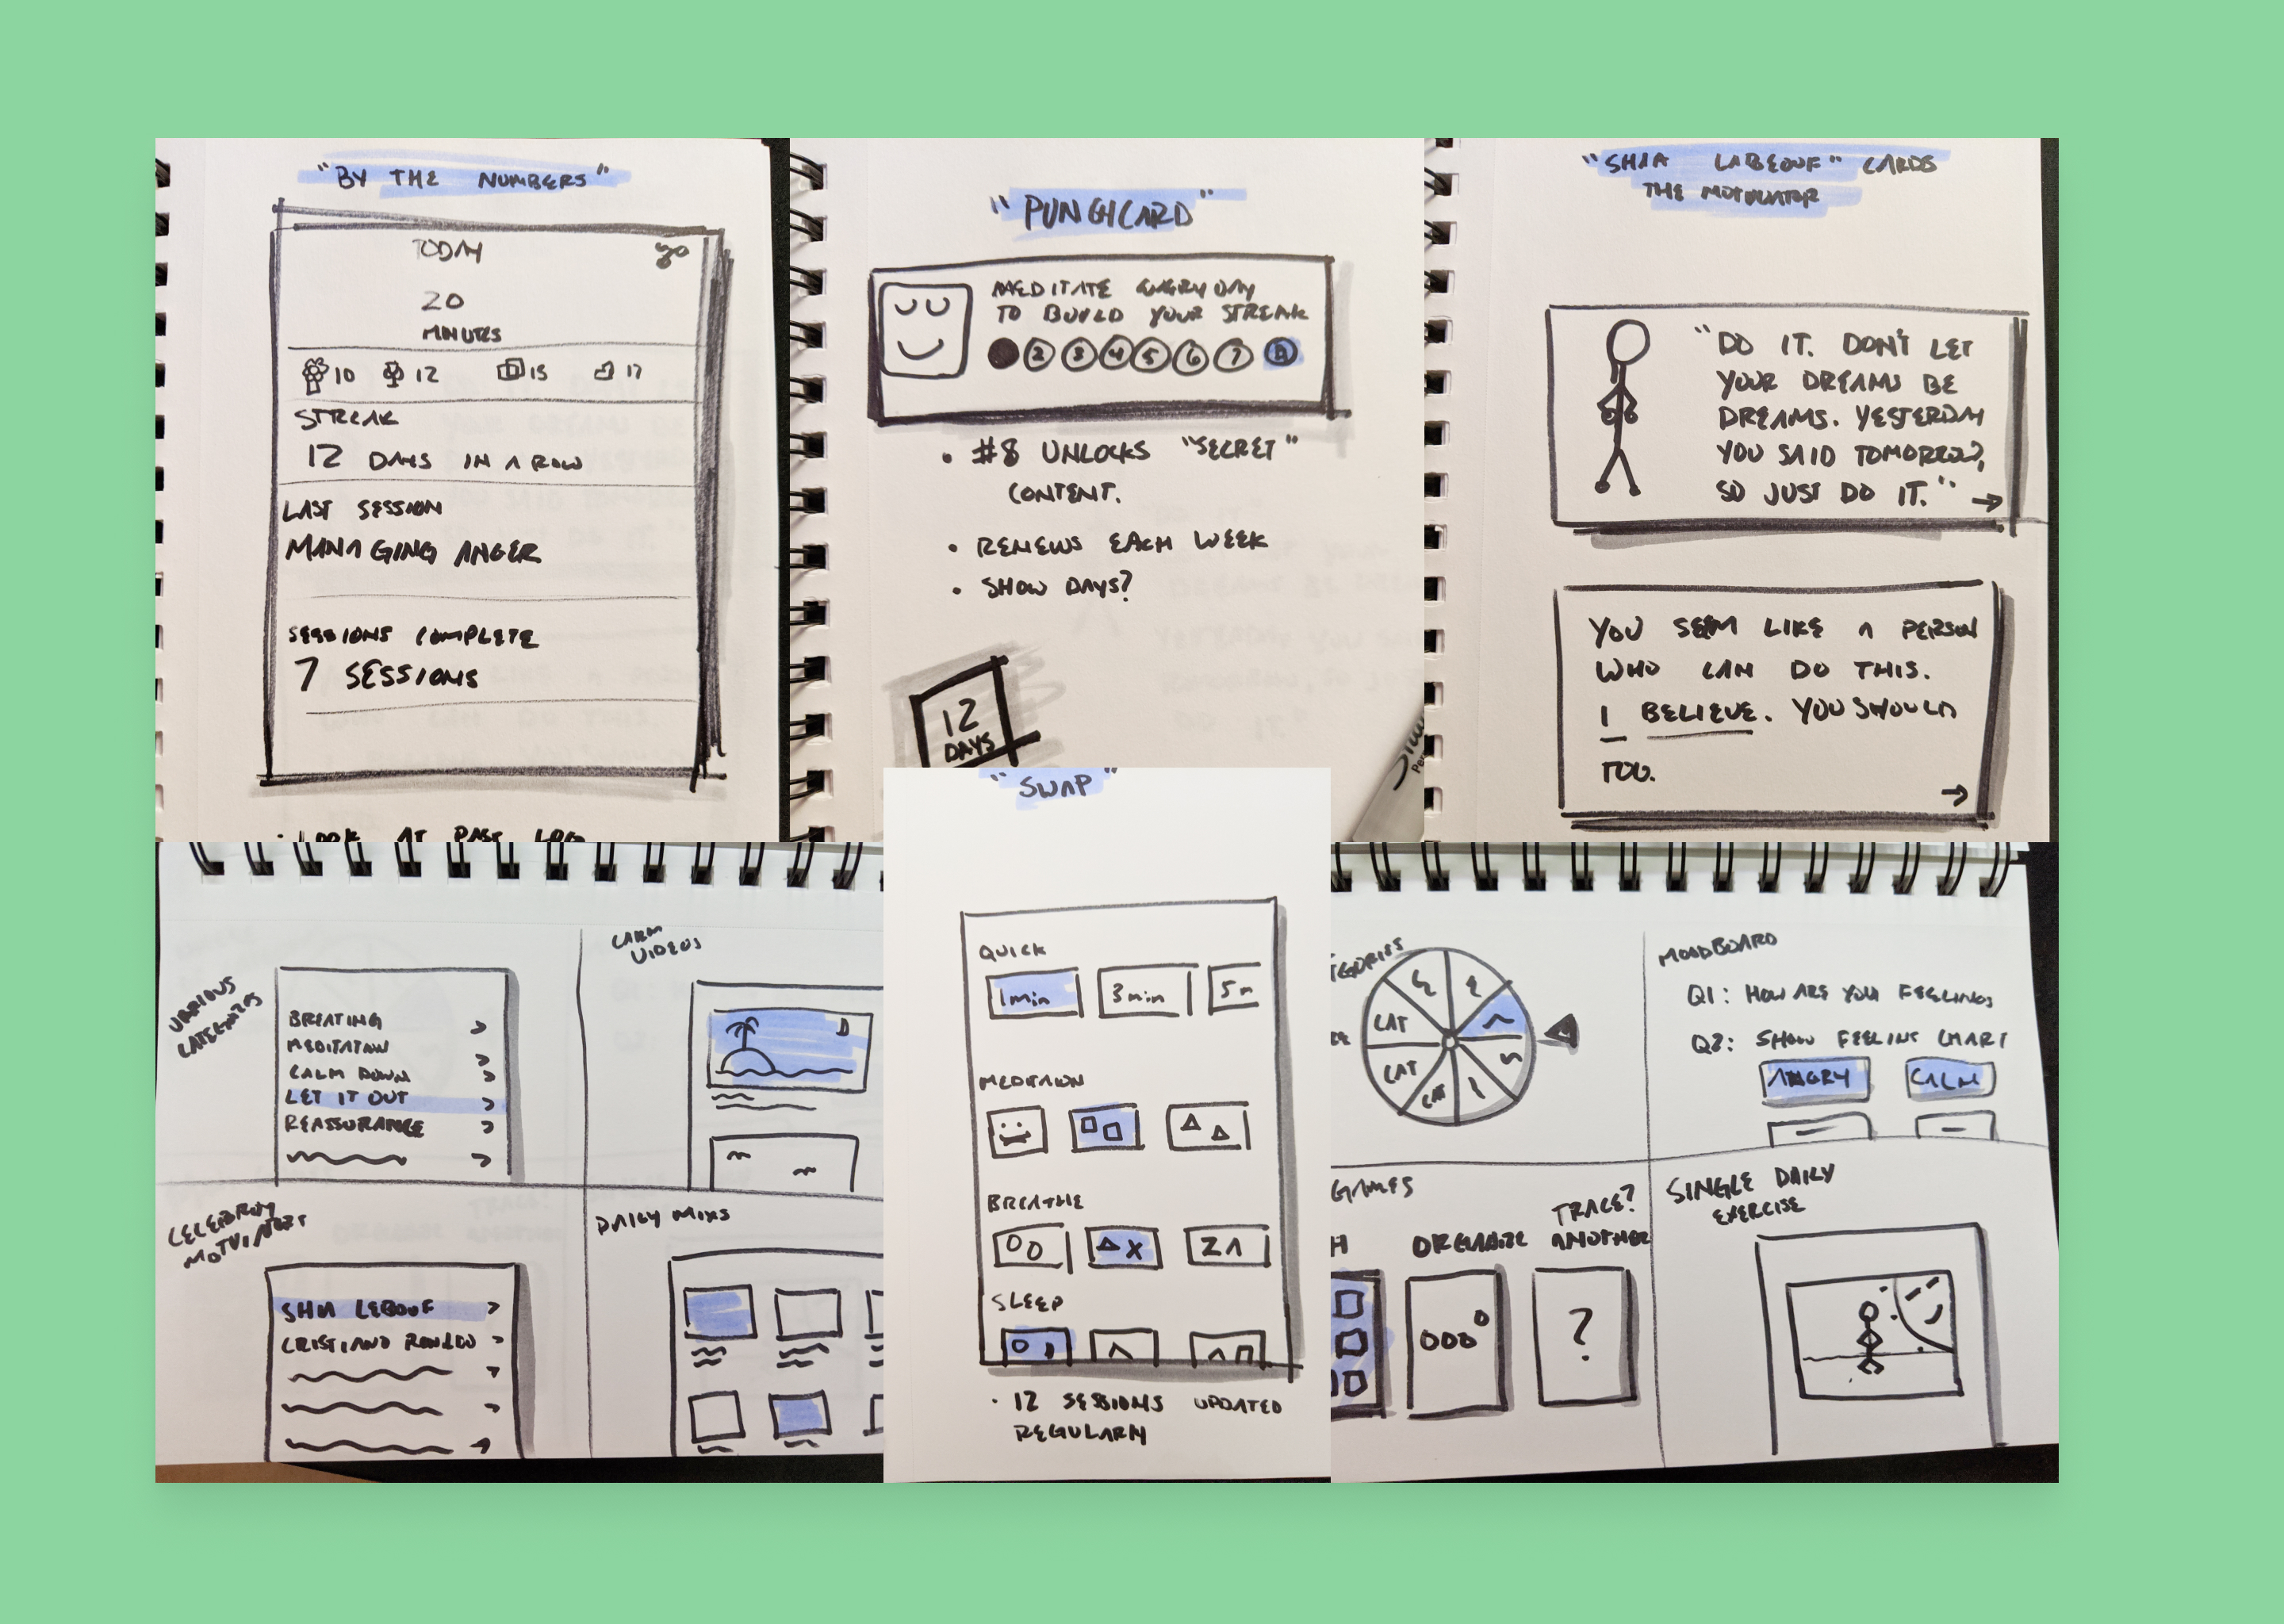 "BY THE NUMBERS"
TODAY
20
MINUTES
10 12 15 17
STREAK
12 DAYS IN A ROW
LAST SESSION
MANAGING ANGER
SESSIONS COMPLETE
7 SESSIONS
• LOOK AT PAST LOG
"PUNCHCARD"
MEDITATE EVERYDAY
TO BUILD YOUR STREAK
2 3 4 5 6 7 8
• #8 UNLOCKS "SECRET"
CONTENT.
• RENEWS EACH WEEK
• SHOW DAYS?
12
DAYS
"SHIA LABEOUF" CARDS
THE MOTIVATOR
"DO IT. DON'T LET
YOUR DREAMS BE
DREAMS. YESTERDAY
YOU SAID TOMORROW,
SO JUST DO IT."
YOU SEEM LIKE A PERSON
WHO CAN DO THIS.
I BELIEVE. YOU SHOULD
TOO.
VARIOUS
CATEGORIES
BREATING
MEDITATION
CALM DOWN
LET IT OUT
REASSURANCE
CALM
VIDEOS
CELEBRITY
SHIA LEBOUF
CRISTIANO RONALDO
DAILY MIXS
"SWAP"
QUICK
1min 3min 5m
MEDITAION
BREATHE
SLEEP
• 12 SESSIONS UPDATED
REGULARLY
CAT
CAT
CAT
MOODBOARD
Q1: HOW ARE YOU FEELINGS
Q2: SHOW FEELING CHART
ANGRY CALM
GAMES
ORGANIZE
TRACE?
ANOTHER
?
SINGLE DAILY
EXERCISE